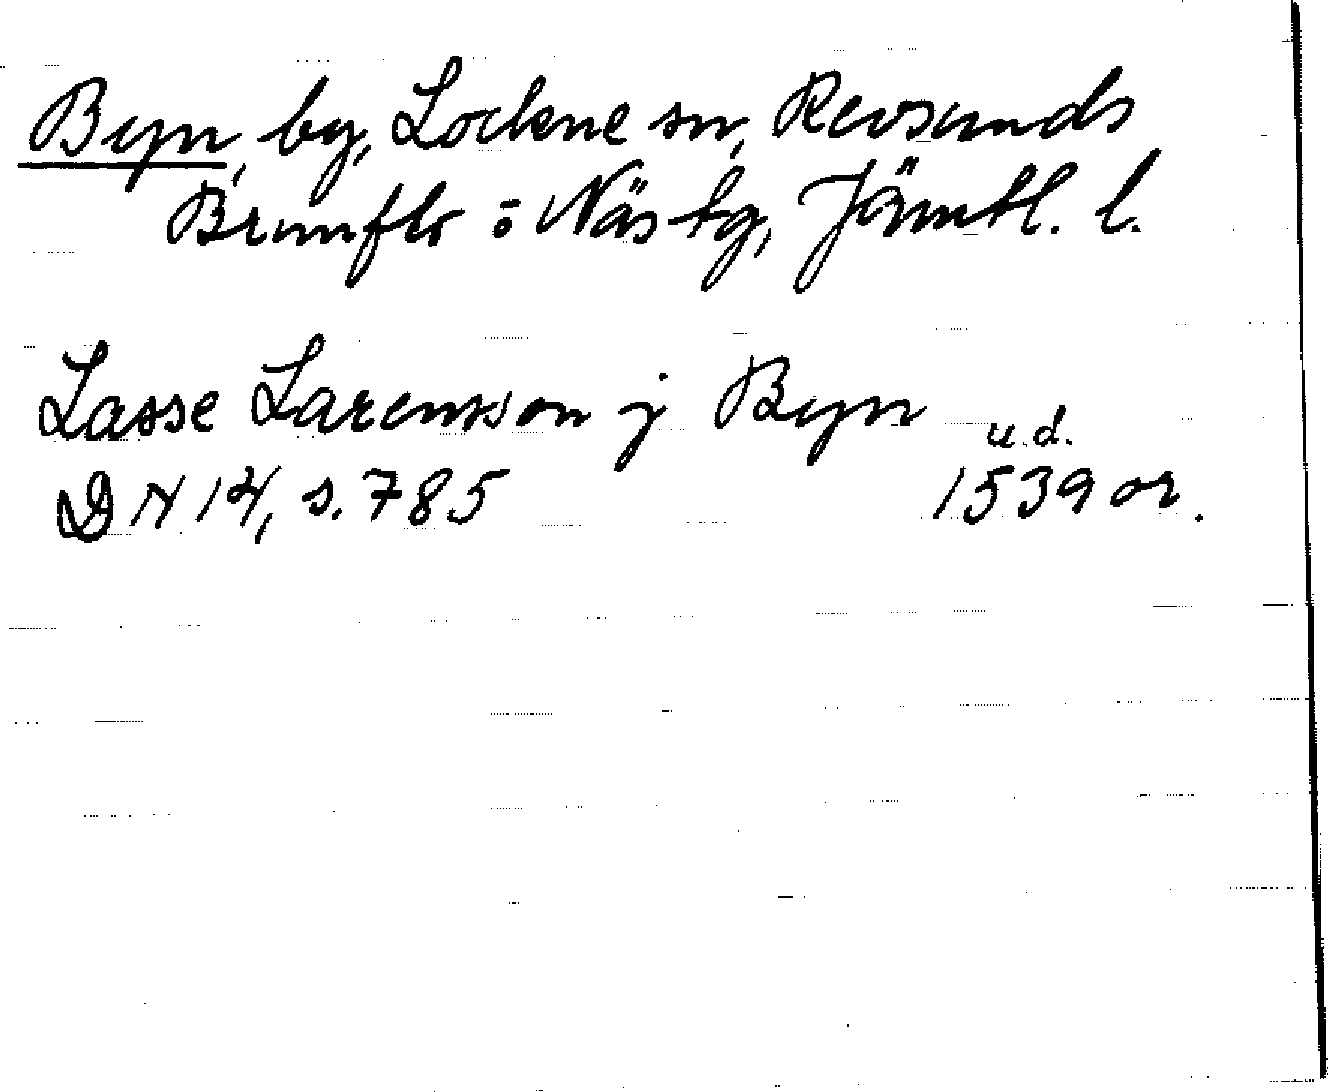 Byn, by, Lockne sn, Revsunds
Brunflo o Näs tg, Jämtl. l.
Lasse Larensson j Byn
u.d.
DN 14, s. 785 1539 or.